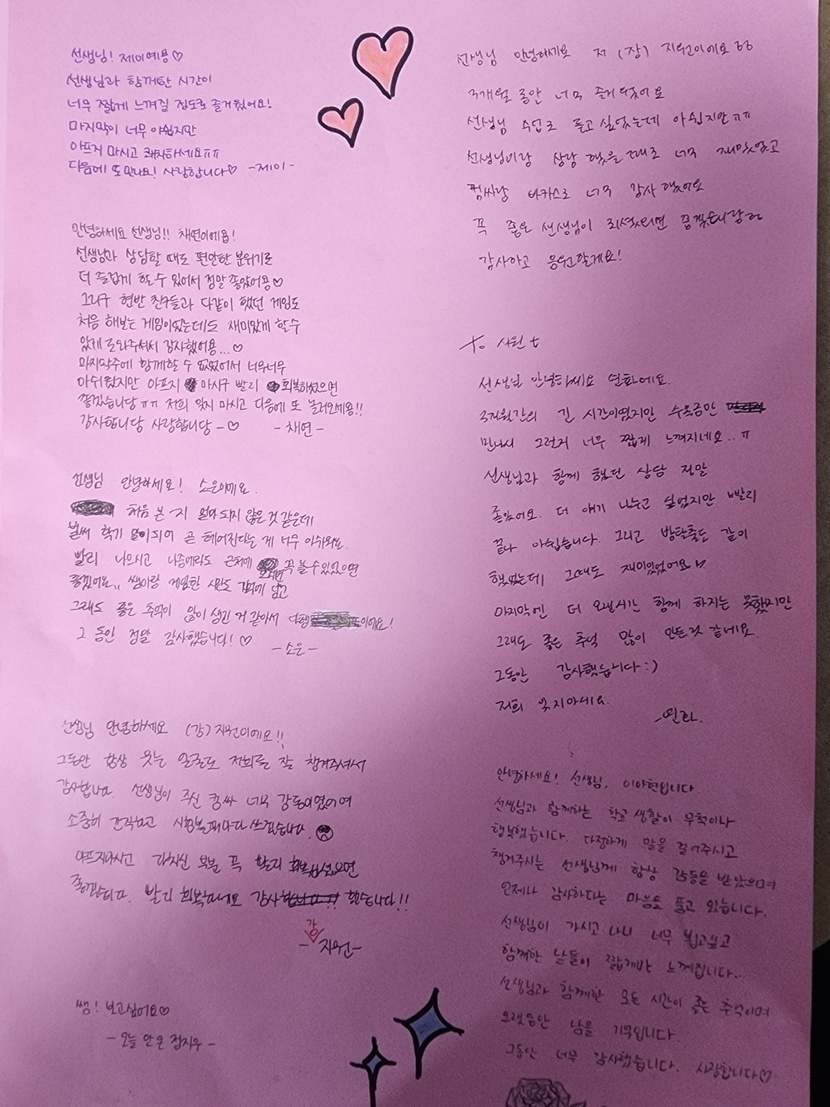 선생님! 제이예용♡
선생님과 함께한 시간이
너무 짧게 느껴질 정도로 즐거웠어요!
마지막이 너무 아쉽지만
아프지 마시고 쾌차하세요ㅠㅠ
다음에 또 만나요! 사랑합니다♡ -제이-
안녕하세요 선생님!! 채연이에용!
선생님과 상담할 때도 편안한 분위기로
더 즐겁게 할 수 있어서 정말 좋았어용♡
그리구 현반 친구들과 다같이 했던 게임도
처음 해보는 게임이었는데도 재미있게 할 수
있게 도와주셔서 감사했어용...♡
마지막주에 함께할 수 없었어서 너무너무
아쉬웠지만 아프지 마시구 빨리 회복하셨으면
좋겠습니당ㅠㅠ 저희 잊지 마시고 다음에 또 놀러오세용!!
감사합니당 사랑합니당-♡ -채연-
선생님 안녕하세요! 소은이에요.
처음 본 지 얼마 되지 않은 것 같은데
벌써 학기 말이 되어 곧 헤어진다는 게 너무 아쉬워요.
빨리 나으시고 나중에라도 근처에 꼭 볼 수 있었으면
좋겠어요.. 쌤이랑 게임한 시간도 기억에 남고
그래도 좋은 추억이 많이 생긴 거 같아서 이에요!
그 동안 정말 감사했습니다!♡ -소은-
선생님 안녕하세요 (강)지원이에요!!
그동안 항상 웃는 얼굴로 저희를 잘 챙겨주셔서
감사합니다. 선생님이 주신 너무 감동이였어여
소중히 간직하고 시험볼때마다 쓰겠습니다.
아프지마시고 다치신 꼭 빨리 회복하셨으면
좋겠습니다. 빨리 회복하세요 감사했습니다!!
-강지원-
쌤! 보고싶어요♡
-오늘 안 온 정지우-
선생님 안녕하세요 저 (장) 지원이에요ㅎㅎ
3개월 동안 너무 즐거웠어요
선생님 수업도 듣고 싶었는데 아쉽지만ㅠㅠ
선생님이랑 상담 했을 때도 너무 재밌었고
바카스도 너무 감사했어요
꼭 좋은 선생님이 되셨으면 좋겠습니당ㅎㅎ
감사하고 응원할게요!
to
선생님 안녕하세요 에요.
3개월간의 긴 시간이였지만
만나서 그런지 너무 짧게 느껴지네요..ㅠ
선생님과 함께 했던 상담 정말
좋았어요. 더 얘기 나누고 싶었지만 빨리
끝나 아쉽습니다. 그리고 방탈출도 같이
했었는데 그때도 재미있었어요
마지막엔 더 오랜시간 함께 하지는 못했지만
그래도 좋은 추억 많이 만든것 같네요.
그동안 감사했습니다:)
저희 잊지마세요.
안녕하세요! 선생님, 이아현입니다
선생님과 함께하는 학교 생활이 무척이나
행복했습니다. 다정하게 말을 걸어주시고
챙겨주시는 선생님께 항상 감동을 받았으며
언제나 감사하다는 마음을 품고 있습니다.
선생님이 가시고 나니 너무 뵙고싶고
함께한 날들이 짧게만 느껴집니다..
선생님과 함께한 모든 시간이 좋은 추억이며
오랫동안 남을 기억입니다.
그동안 너무 감사했습니다. 사랑합니다♡.